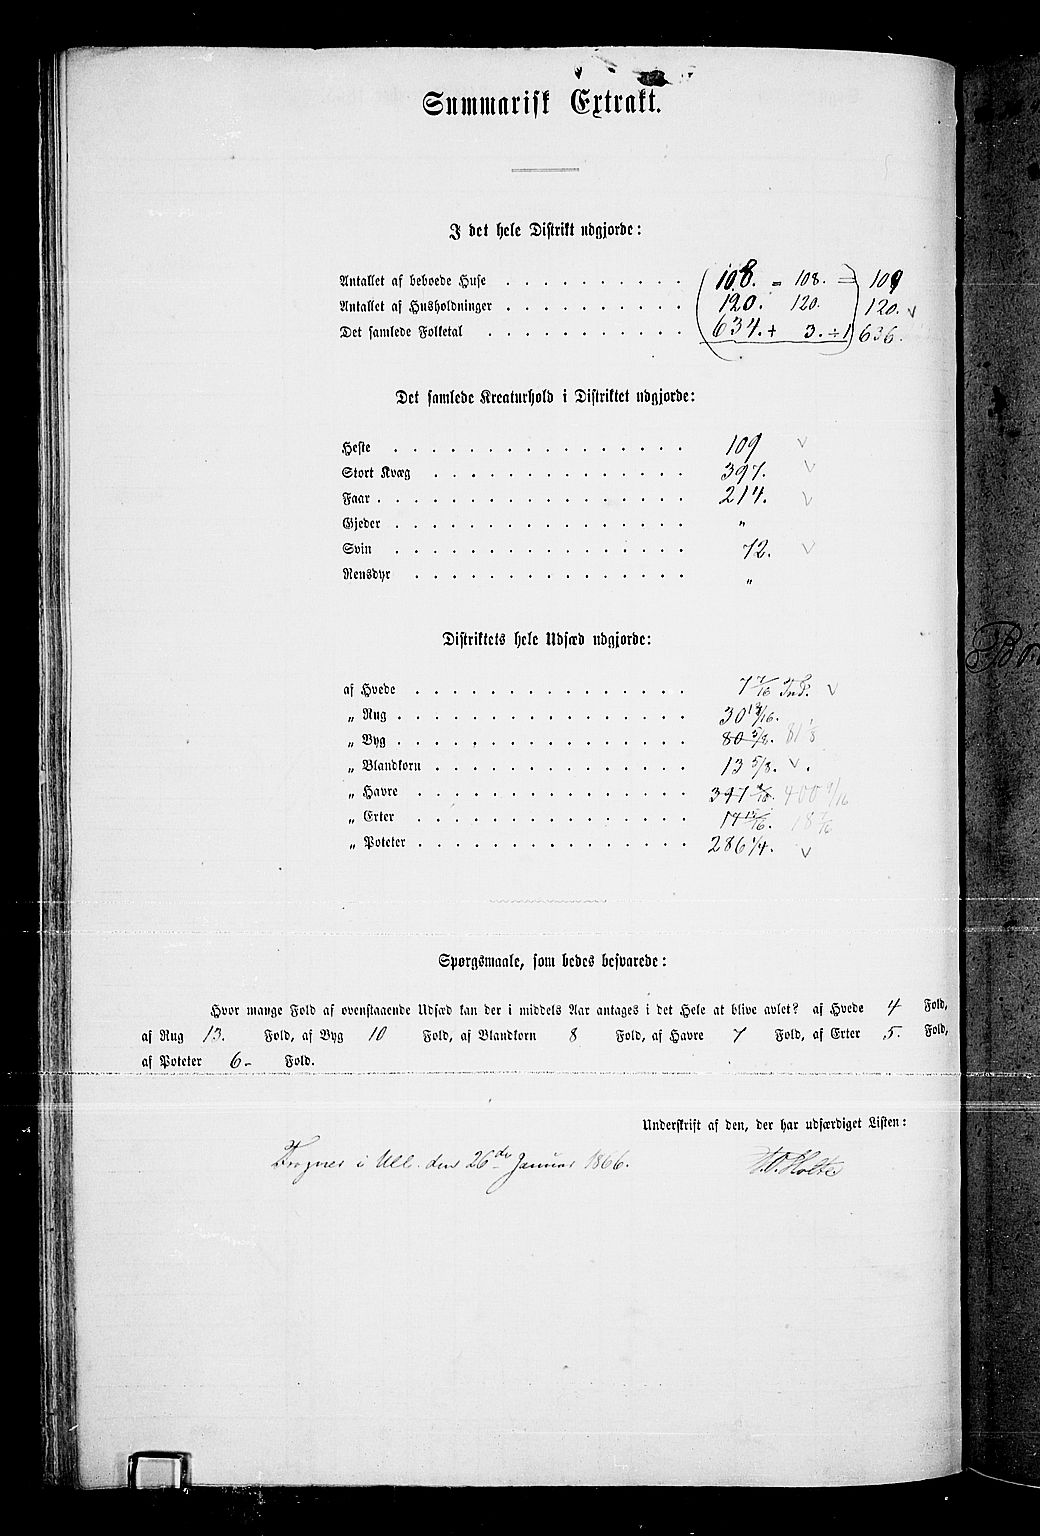 Summarisk Extrakt.
I det hele Distrikt udgjorde:
Antallet af beboede Huse . . . . . . . . . . (108. = 108. = 109
Antallet af Husholdninger . . . . . . . . . . 120. 120. 120. v
Det samlede Folketal . . . . . . . . . . . 634. + 3. ÷ 1) 636.
Det samlede Kreaturhold i Distriktet udgjorde:
Heste . . . . . . . . . . . . . . . . 109 v
Stort Kvæg . . . . . . . . . . . . . . 397. v
Faar . . . . . . . . . . . . . . . . . 214. v
Gjeder . . . . . . . . . . . . . . . . "
Svin . . . . . . . . . . . . . . . . 72. v
Rensdyr . . . . . . . . . . . . . . . "
Distriktets hele Udsæd udgjorde:
af Hvede . . . . . . . . . . . . . . . 7 7/16 Tnd. v
„ Rug . . . . . . . . . . . . . . . . 30 13/16.
„ Byg . . . . . . . . . . . . . . . . 80 5/8. 81 1/8
„ Blandkorn . . . . . . . . . . . . . . 13 5/8. v .
„ Havre . . . . . . . . . . . . . . . 397 400 9/16
„ Erter . . . . . . . . . . . . . . . 17 15/16. 18 7/16
„ Poteter . . . . . . . . . . . . . . . 286 1/4. v
Spørgsmaale, som bedes besvarede:
Hvor mange Fold af ovenstaaende Udsæd kan der i middels Aar antages i det Hele at blive avlet? af Hvede 4 Fold,
af Rug 13. Fold, af Byg 10 Fold, af Blandkorn 8 Fold, af Havre 7 Fold, af Erter 5. Fold,
af Poteter 6- Fold.
Underskrift af den, der har udfærdiget Listen:
Frogner i Ull. den 26de Januar 1866. Holte